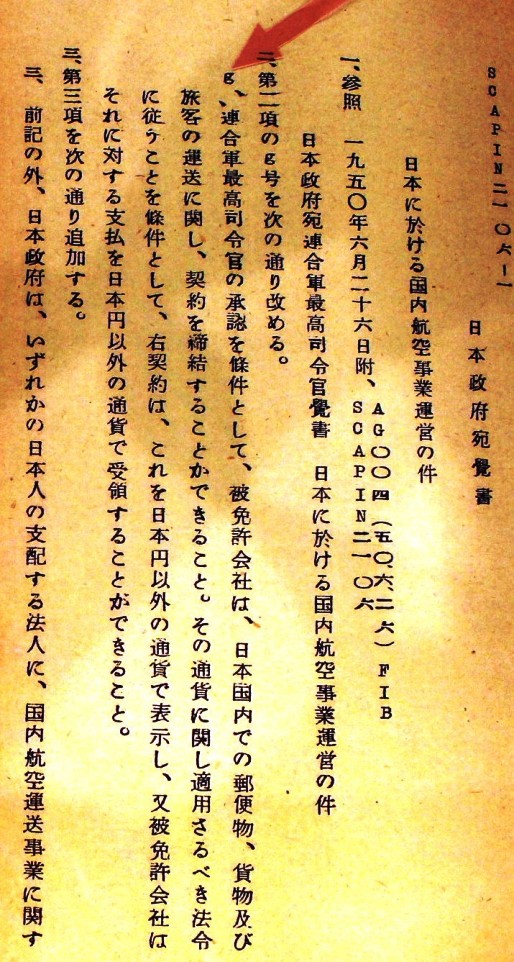 SCAPIN二一〇六ー一
日本政府宛覺書
日本に於ける国内航空事業運営の件
一、参照　一九五〇年六月二十六日附、AG〇〇四（五〇、六、二六）FIB
SCAPIN二一〇六
日本政府宛連合軍最高司令官覺書　日本に於ける国内航空事業運営の件
二、第二項のg号を次の通り改める。
g、連合軍最高司令官の承認を條件として、被免許会社は、日本国内での郵便物、貨物及び
旅客の運送に関し、契約を締結することができること。その通貨に関し適用さるべき法令
に従うことを條件として、右契約は、これを日本円以外の通貨で表示し、又被免許会社は
それに対する支払を日本円以外の通貨で受領することができること。
三、第三項を次の通り追加する。
三、前記の外、日本政府は、いずれかの日本人の支配する法人に、国内航空運送事業に関す